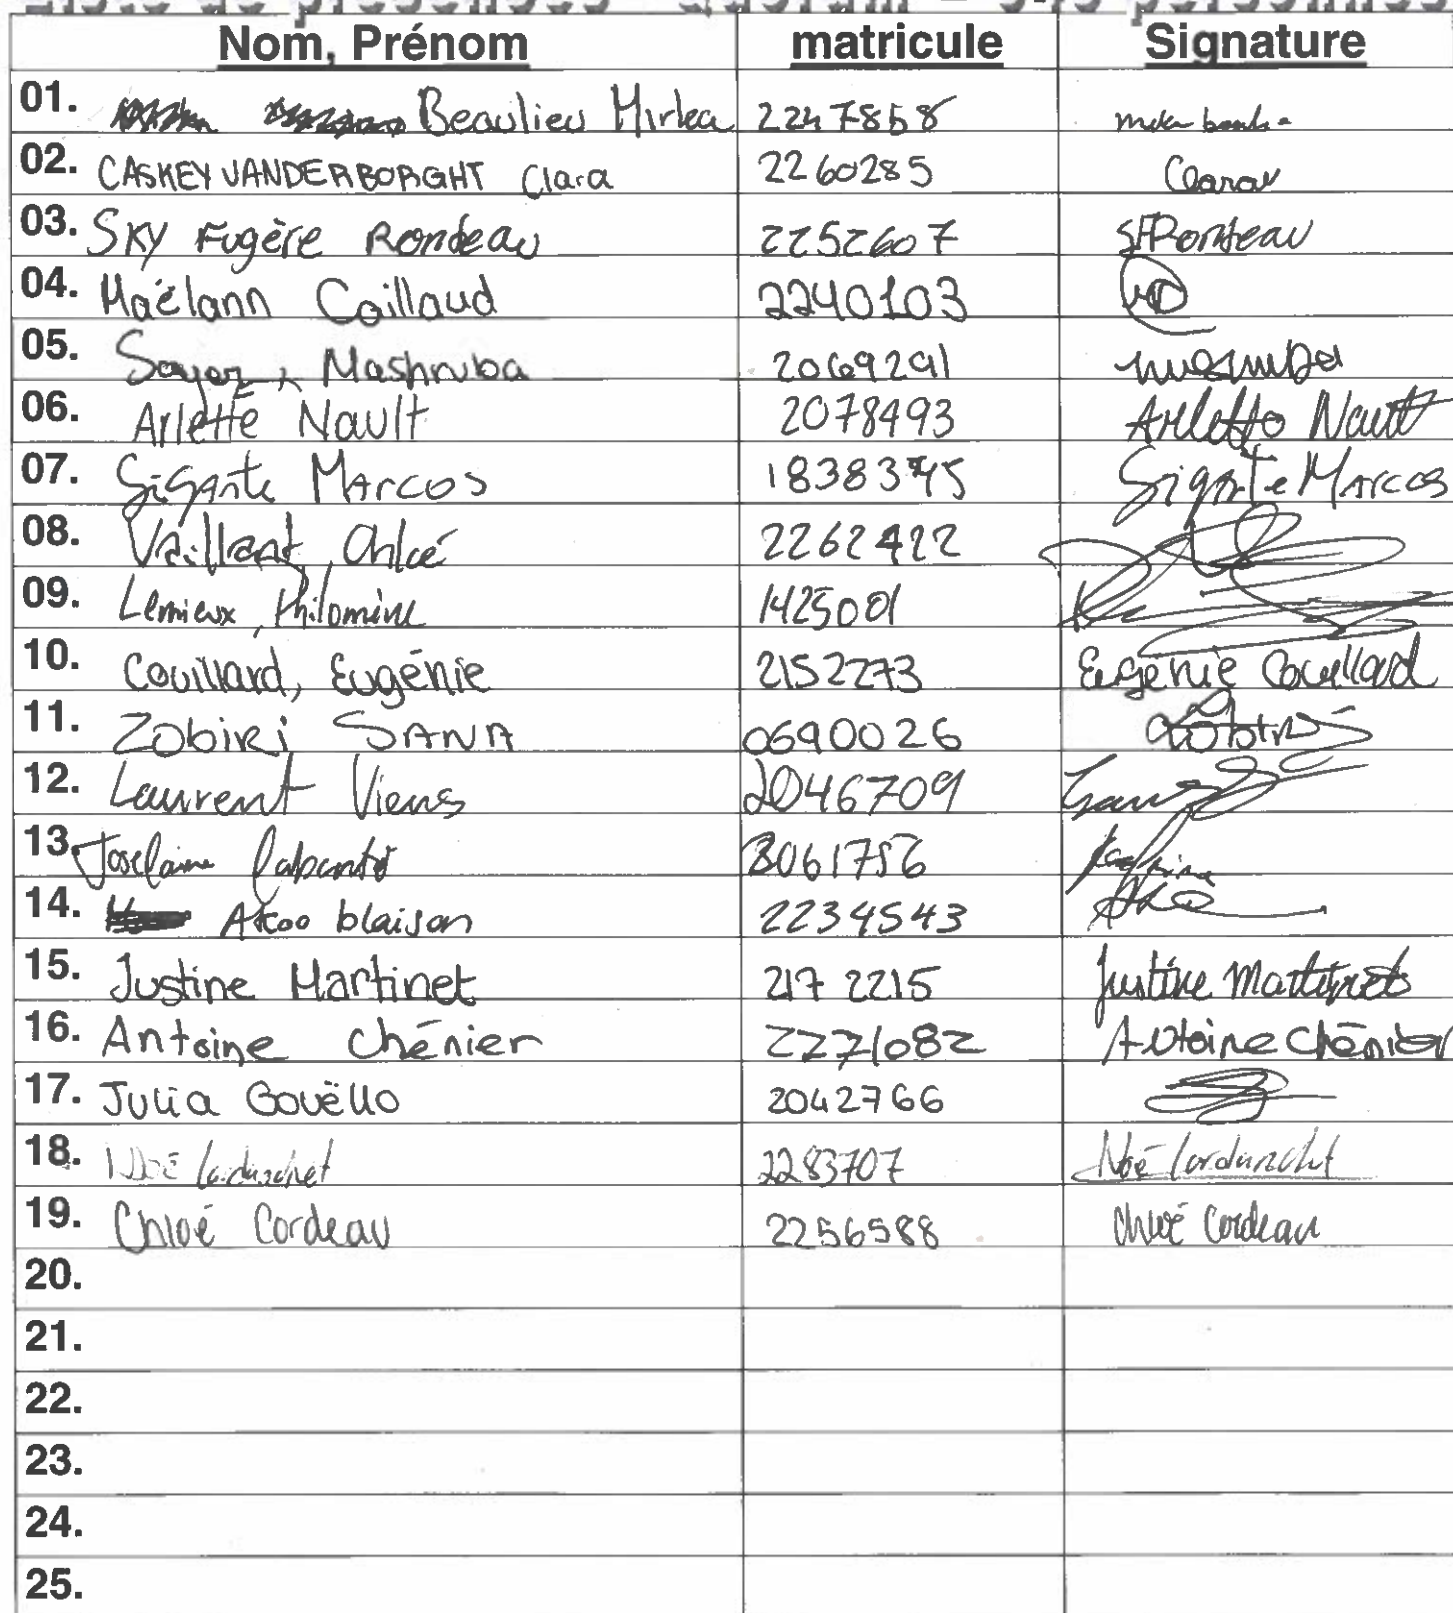 Nom, Prénom matricule Signature
01. Beaulieu Mirka 2247858
02. CASKEY VANDERBORGHT Clara 2260285 Clara
03. SKY Fugère Rondeau 2252607 SFRondeau
04. Maëlann Caillaud 2240103
05. Sayoz, Mashruba 2069291
06. Arlette Nault 2078493 Arlette Nault
07. Gigante Marcos 18383745 Gigante Marcos
08. Vaillant, Chloé 2262422
09. Lemieux, Philomène 1425001
10. Couillard, Eugénie 2152273 Eugénie Couillard
11. Zobiri SANA 0690026
12. Laurent Viens 2046709
13. 3061756
14. Akoo blaison 2234543
15. Justine Martinet 217 2215 Justine Martinet
16. Antoine Chénier 2271082 Antoine Chénier
17. Julia Gouëllo 2042766
18. Noé 2283707 Noé
19. Chloé Cordeau 2256588 Chloé Cordeau
20.
21.
22.
23.
24.
25.